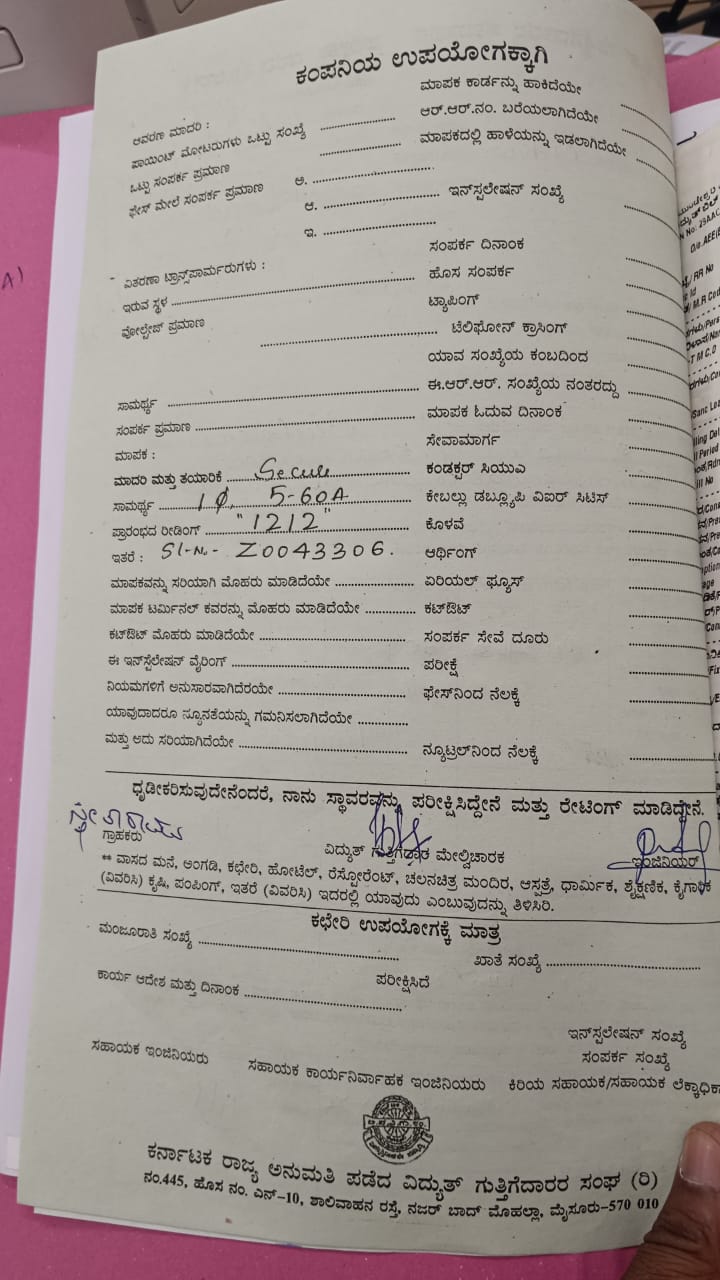 ಕಂಪನಿಯ ಉಪಯೋಗಕ್ಕಾಗಿ
ಮಾಪಕ ಕಾರ್ಡನ್ನು ಹಾಕಿದೆಯೇ
ಆವರಣ ಮಾದರಿ : ಆರ್.ಆರ್.ನಂ. ಬರೆಯಲಾಗಿದೆಯೇ
ಪಾಯಿಂಟ್ ಮೋಟರುಗಳು ಒಟ್ಟು ಸಂಖ್ಯೆ ಮಾಪಕದಲ್ಲಿ ಹಾಳೆಯನ್ನು ಇಡಲಾಗಿದೆಯೇ
ಒಟ್ಟು ಸಂಪರ್ಕ ಪ್ರಮಾಣ
ಫೇಸ್ ಮೇಲೆ ಸಂಪರ್ಕ ಪ್ರಮಾಣ ಅ.
ಆ. ಇನ್‌ಸ್ಪಲೇಷನ್ ಸಂಖ್ಯೆ
ಇ.
ಸಂಪರ್ಕ ದಿನಾಂಕ
ವಿತರಣಾ ಟ್ರಾನ್ಸ್‌ಪಾರ್ಮರುಗಳು : ಹೊಸ ಸಂಪರ್ಕ
ಇರುವ ಸ್ಥಳ ಟ್ಯಾಪಿಂಗ್
ವೋಲ್ಟೇಜ್ ಪ್ರಮಾಣ ಟೆಲಿಫೋನ್ ಕ್ರಾಸಿಂಗ್
ಯಾವ ಸಂಖ್ಯೆಯ ಕಂಬದಿಂದ
ಸಾಮರ್ಥ್ಯ ಈ.ಆರ್.ಆರ್. ಸಂಖ್ಯೆಯ ನಂತರದ್ದು
ಸಂಪರ್ಕ ಪ್ರಮಾಣ ಮಾಪಕ ಓದುವ ದಿನಾಂಕ
ಮಾಪಕ : ಸೇವಾಮಾರ್ಗ
ಮಾದರಿ ಮತ್ತು ತಯಾರಿಕೆ Secure ಕಂಡಕ್ಟರ್ ಸಿಯುಎ
ಸಾಮರ್ಥ್ಯ 1φ, 5-60A ಕೇಬಲ್ಲು ಡಬ್ಲ್ಯೂಪಿ ವಿಐರ್ ಸಿಟಿಸ್
ಪ್ರಾರಂಭದ ರೀಡಿಂಗ್ "1212" ಕೊಳವೆ
ಇತರೆ : Sl-No- Z0043306. ಆರ್ಥಿಂಗ್
ಮಾಪಕವನ್ನು ಸರಿಯಾಗಿ ಮೊಹರು ಮಾಡಿದೆಯೇ ಏರಿಯಲ್ ಫ್ಯೂಸ್
ಮಾಪಕ ಟರ್ಮಿನಲ್ ಕವರನ್ನು ಮೊಹರು ಮಾಡಿದೆಯೇ ಕಟ್‌ಔಟ್
ಕಟ್‌ಔಟ್ ಮೊಹರು ಮಾಡಿದೆಯೇ ಸಂಪರ್ಕ ಸೇವೆ ದೂರು
ಈ ಇನ್‌ಸ್ಪಲೇಷನ್ ವೈರಿಂಗ್ ಪರೀಕ್ಷೆ
ನಿಯಮಗಳಿಗೆ ಅನುಸಾರವಾಗಿದೆರಯೇ ಫೇಸ್‌ನಿಂದ ನೆಲಕ್ಕೆ
ಯಾವುದಾದರೂ ನ್ಯೂನತೆಯನ್ನು ಗಮನಿಸಲಾಗಿದೆಯೇ
ಮತ್ತು ಅದು ಸರಿಯಾಗಿದೆಯೇ ನ್ಯೂಟ್ರಲ್‌ನಿಂದ ನೆಲಕ್ಕೆ
ಧೃಡೀಕರಿಸುವುದೇನೆಂದರೆ, ನಾನು ಸ್ಥಾವರವನ್ನು ಪರೀಕ್ಷಿಸಿದ್ದೇನೆ ಮತ್ತು ರೇಟಿಂಗ್ ಮಾಡಿದ್ದೇನೆ.
ಗ್ರಾಹಕರು ವಿದ್ಯುತ್ ಗುತ್ತಿಗೆದಾರ ಮೇಲ್ವಿಚಾರಕ ಇಂಜಿನಿಯರ್
** ವಾಸದ ಮನೆ, ಅಂಗಡಿ, ಕಛೇರಿ, ಹೋಟೆಲ್, ರೆಸ್ಟೋರೆಂಟ್, ಚಲನಚಿತ್ರ ಮಂದಿರ, ಆಸ್ಪತ್ರೆ, ಧಾರ್ಮಿಕ, ಶೈಕ್ಷಣಿಕ, ಕೈಗಾರಿಕ
(ವಿವರಿಸಿ) ಕೃಷಿ, ಪಂಪಿಂಗ್, ಇತರೆ (ವಿವರಿಸಿ) ಇದರಲ್ಲಿ ಯಾವುದು ಎಂಬುವುದನ್ನು ತಿಳಿಸಿರಿ.
ಕಛೇರಿ ಉಪಯೋಗಕ್ಕೆ ಮಾತ್ರ
ಮಂಜೂರಾತಿ ಸಂಖ್ಯೆ ಖಾತೆ ಸಂಖ್ಯೆ
ಕಾರ್ಯ ಆದೇಶ ಮತ್ತು ದಿನಾಂಕ ಪರೀಕ್ಷಿಸಿದೆ
ಇನ್‌ಸ್ಪಲೇಷನ್ ಸಂಖ್ಯೆ
ಸಂಪರ್ಕ ಸಂಖ್ಯೆ
ಸಹಾಯಕ ಇಂಜಿನಿಯರು ಸಹಾಯಕ ಕಾರ್ಯನಿರ್ವಾಹಕ ಇಂಜಿನಿಯರು ಕಿರಿಯ ಸಹಾಯಕ/ಸಹಾಯಕ ಲೆಕ್ಕಾಧಿಕಾ
ಕರ್ನಾಟಕ ರಾಜ್ಯ ಅನುಮತಿ ಪಡೆದ ವಿದ್ಯುತ್ ಗುತ್ತಿಗೆದಾರರ ಸಂಘ (ರಿ)
ನಂ.445, ಹೊಸ ನಂ. ಎನ್-10, ಶಾಲಿವಾಹನ ರಸ್ತೆ, ನಜರ್ ಬಾದ್ ಮೊಹಲ್ಲಾ, ಮೈಸೂರು-570 010